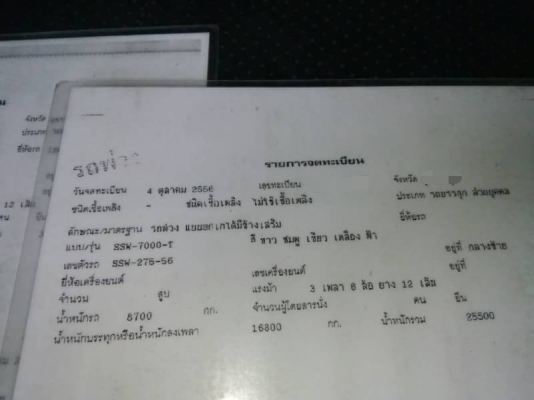 จังหวัด
ประเภท
ยี่ห้อรถ
12 เส้น
คน ยืน
รถพ่วง
รายการจดทะเบียน
วันจดทะเบียน 4 ตุลาคม 2556 เลขทะเบียน จังหวัด
ชนิดเชื้อเพลิง - ชนิดเชื้อเพลิง ไม่ใช้เชื้อเพลิง ประเภท ส่วนบุคคล
ลักษณะ/มาตรฐาน รถพ่วง ยี่ห้อรถ
แบบ/รุ่น SSW-7000-T สี ขาว ชมพู เขียว เหลือง ฟ้า
เลขตัวรถ SSW-275-56 อยู่ที่ กลางซ้าย
ยี่ห้อเครื่องยนต์ เลขเครื่องยนต์ อยู่ที่
จำนวน สูบ แรงม้า 3 เพลา 6 ล้อ ยาง 12 เส้น
น้ำหนักรถ 8700 กก. จำนวนผู้โดยสารนั่ง คน ยืน
น้ำหนักบรรทุกหรือน้ำหนักลงเพลา 16800 กก. น้ำหนักรวม 25500